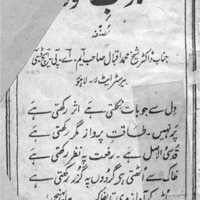 مصنفہ
جناب ڈاکٹر شیخ محمد اقبال صاحب ایم۔ اے۔ پی ایچ ڈی
بیرسٹر ایٹ لا۔ لاہور
دل سے جو بات نکلتی ہے اثر رکھتی ہے
پر نہیں۔ طاقتِ پرواز مگر رکھتی ہے
قدسی الاصل ہے۔ رفعت پہ نظر رکھتی ہے
خاک سے اُٹھتی ہے گردوں پہ گذر رکھتی ہے